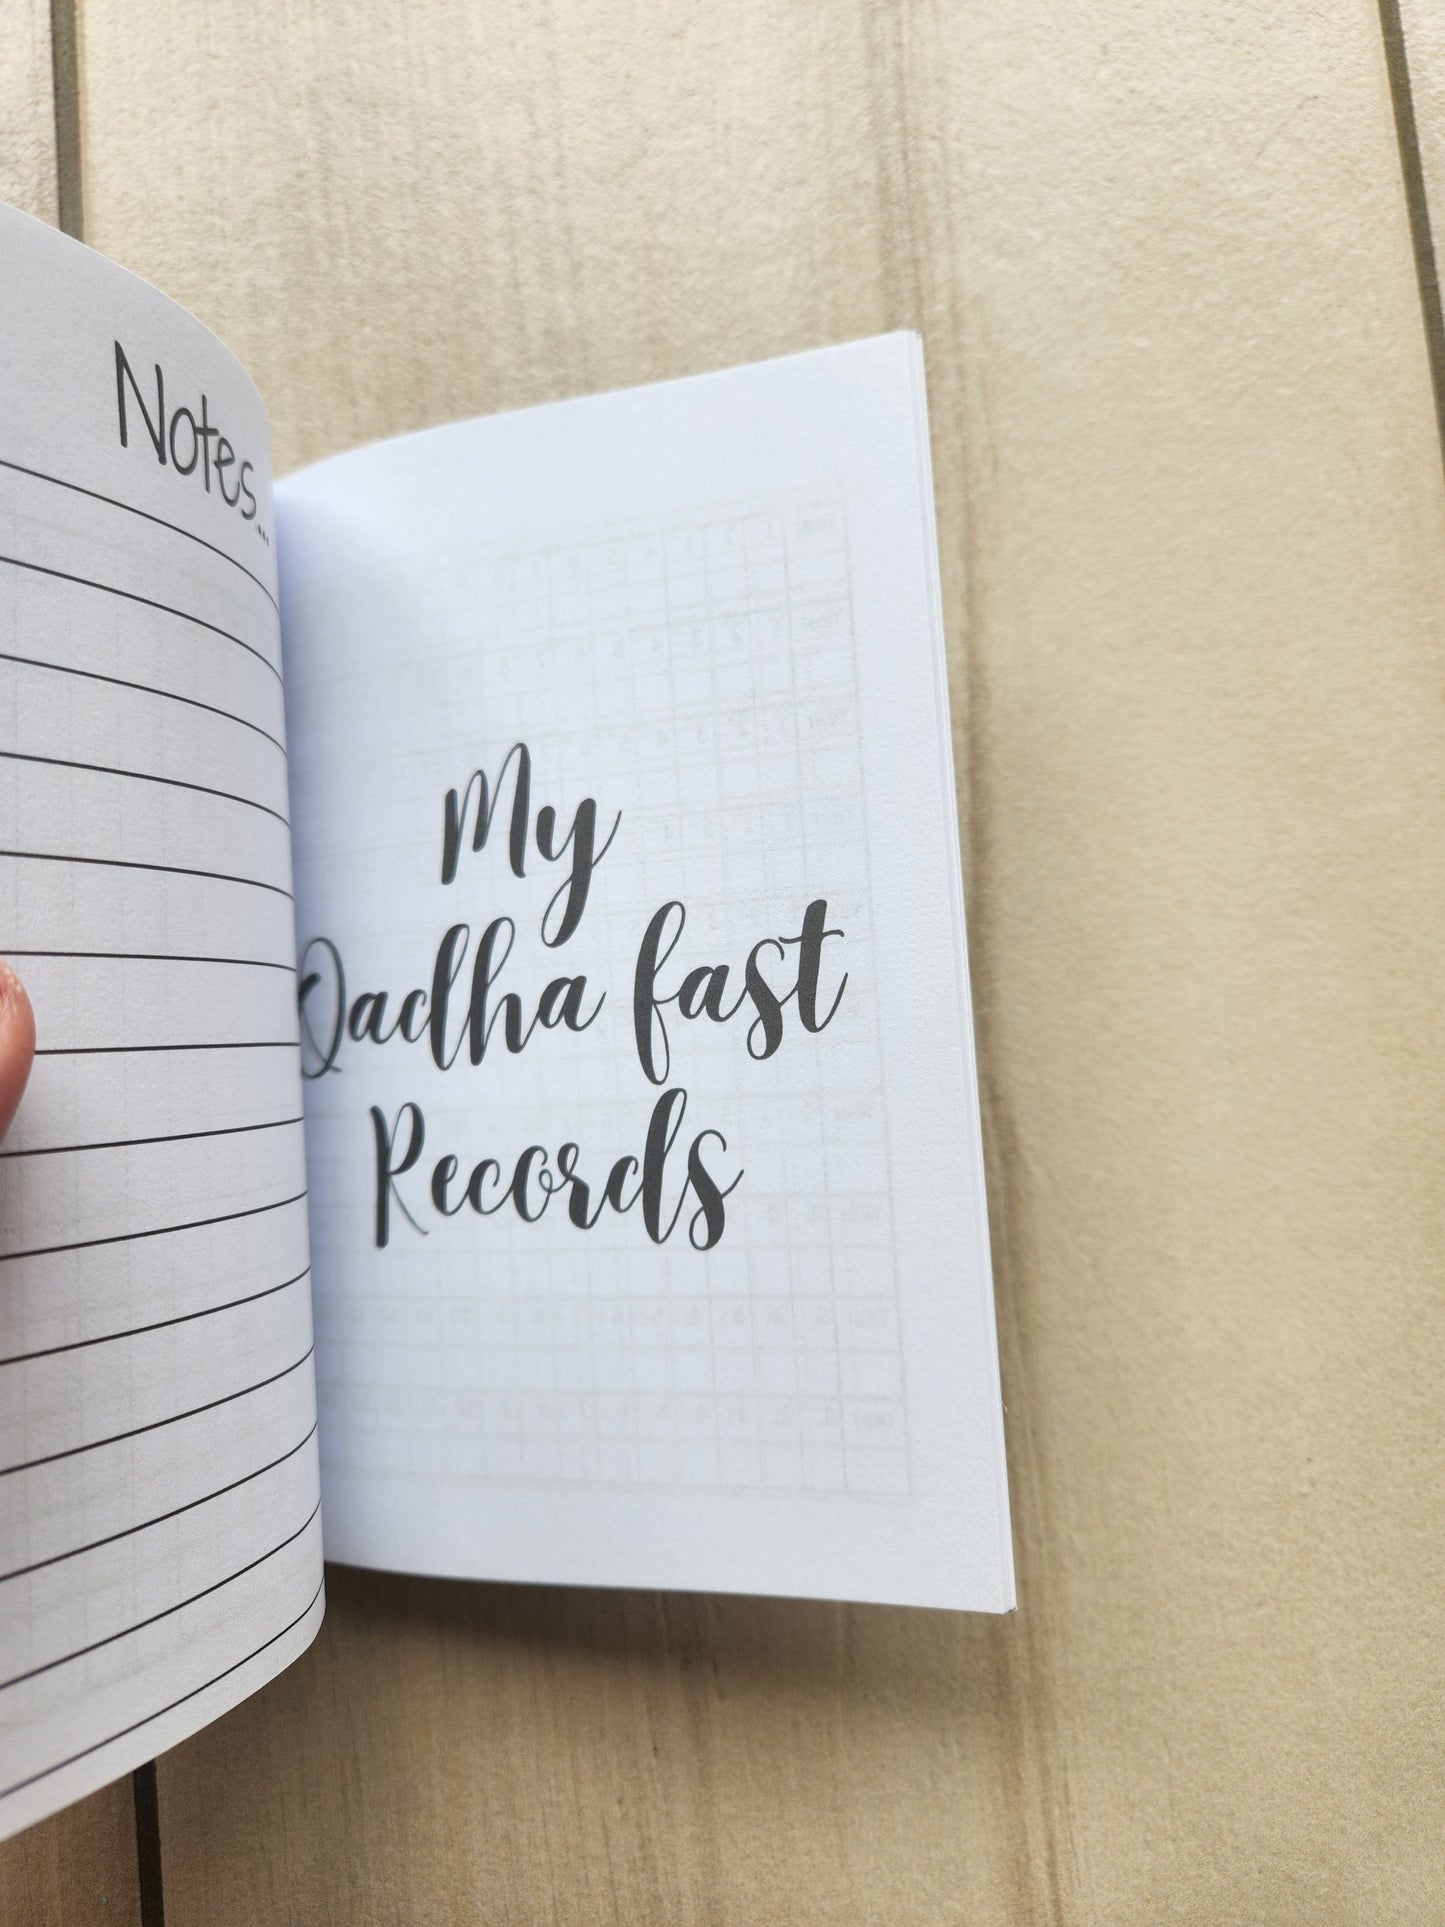 Notes...
My
Qadha fast
Records